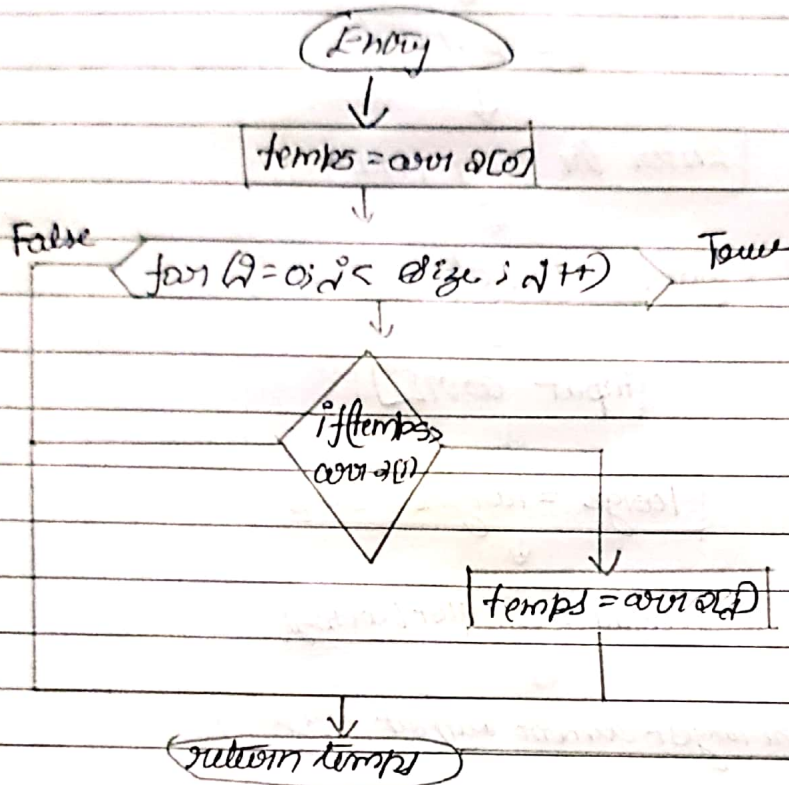 Entry
temps = arr2[0]
False
for (i=0; i< size; i++)
True
if(temps>
arr2[i]
temps = arr2[i]
return temps